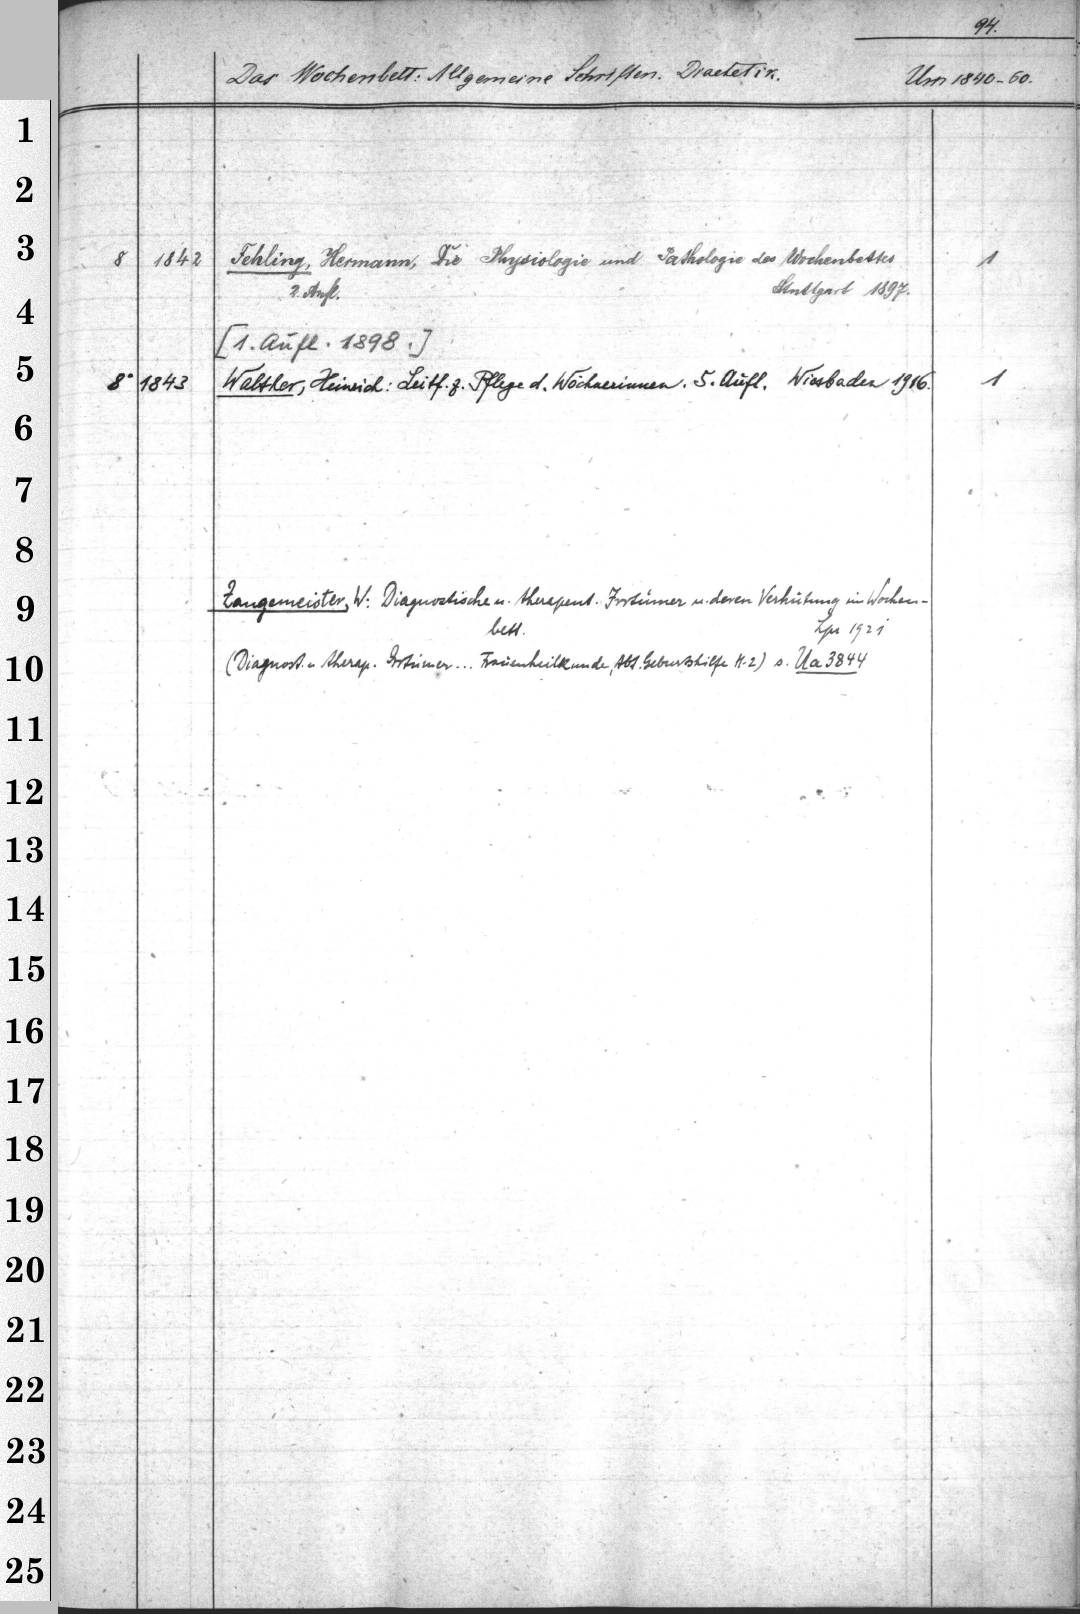 94.
Das Wochenbett: Allgemeine Schriften. Diaetetik. Um 1840-60.
1
2
3
8 1842 Fehling, Hermann, Die Physiologie und Pathologie des Wochenbettes 1
2. Aufl. Stuttgart 1897.
4
[1. Aufl. 1898.]
5
8° 1843 Walther, Heinrich: Leitf. z. Pflege d. Wöchnerinnen. 5. Aufl. Wiesbaden 1916. 1
6
7
8
9
Zangemeister, W: Diagnostische u. therapeut. Irrtümer u. deren Verhütung im Wochen-
bett. Lpz 1921
10
(Diagnost. u. therap. Irrtümer ... Frauenheilkunde, Abt. Geburtshilfe H. 2) s. Ua 3844
11
12
13
14
15
16
17
18
19
20
21
22
23
24
25